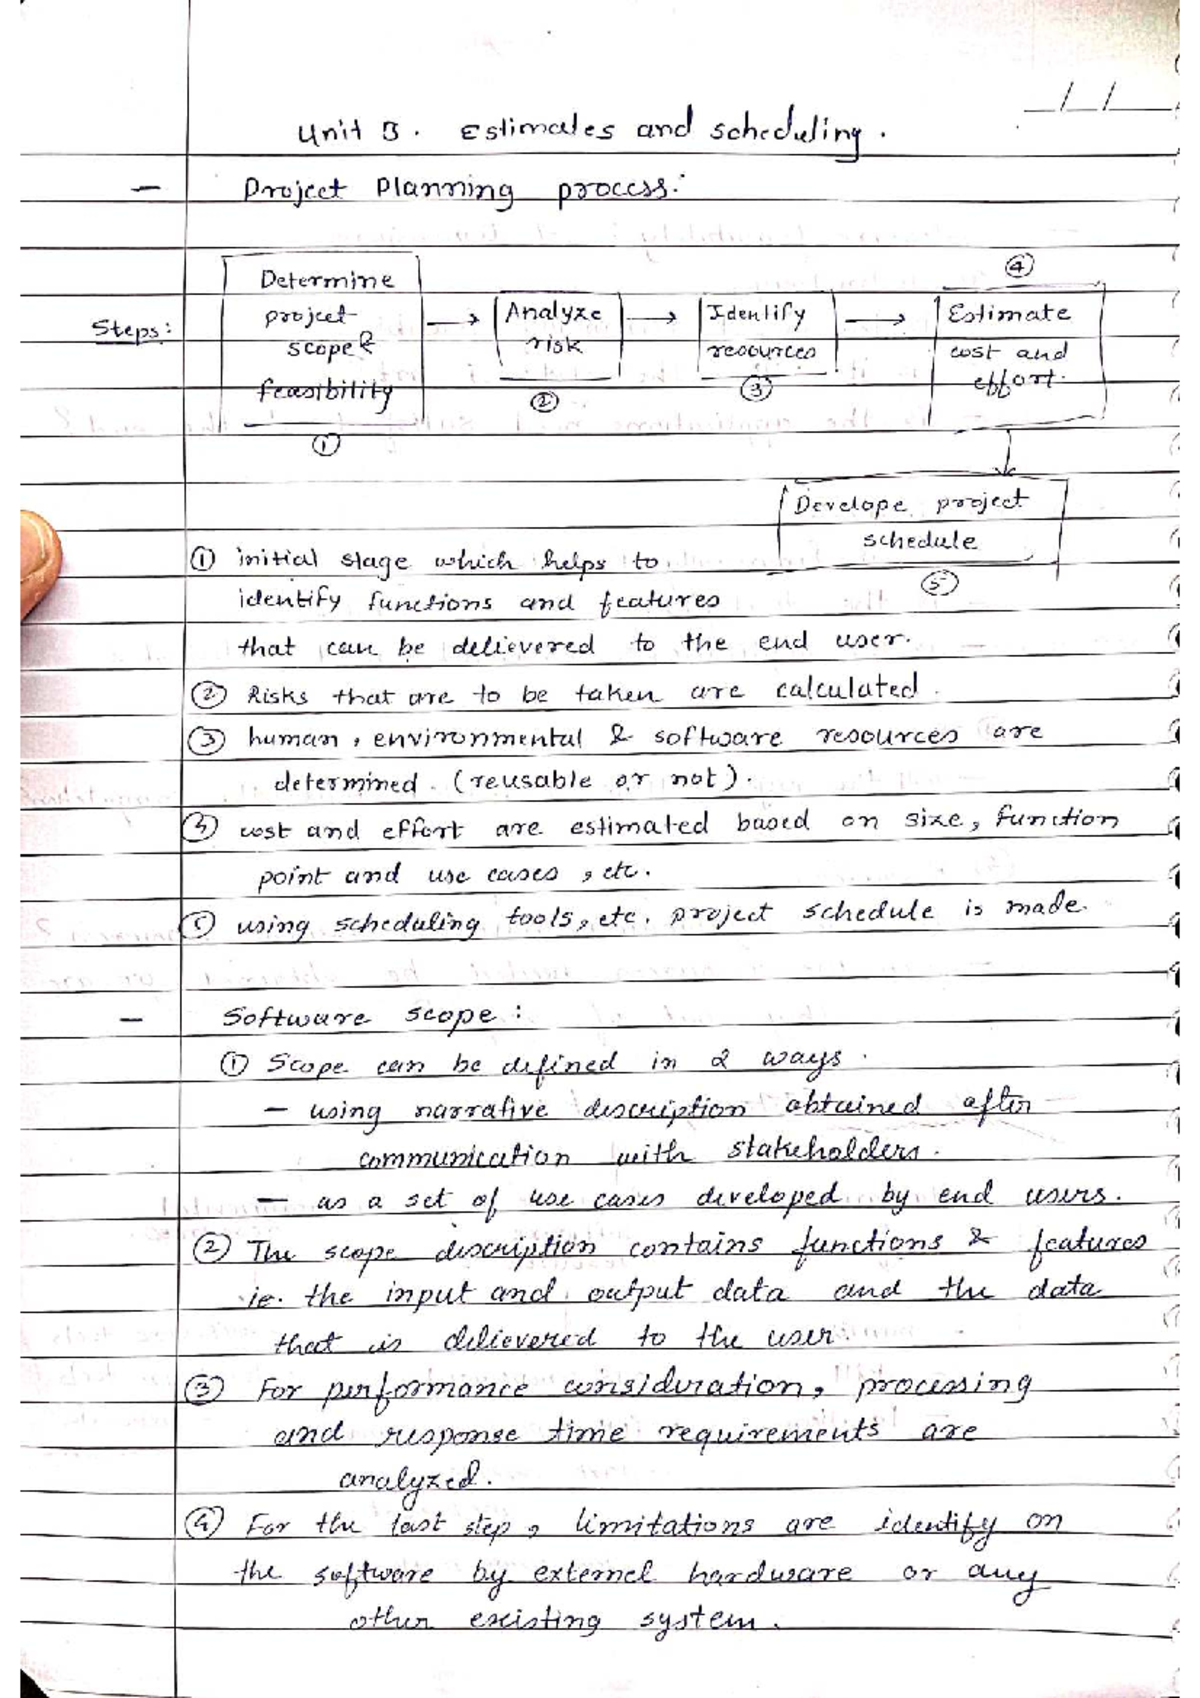 Unit 3. Estimates and scheduling.
— Project Planning process:
Steps:
Determine
project
scope &
feasibility
①
→
Analyze
risk
②
→
Identify
resources
③
→
④
Estimate
cost and
effort.
↓
Develope project
schedule
⑤
① initial stage which helps to
identify functions and features
that can be delievered to the end user.
② Risks that are to be taken are calculated.
③ human, environmental & software resources are
determined. (reusable or not).
④ cost and effort are estimated based on size, function
point and use cases, etc.
⑤ using scheduling tools, etc. project schedule is made.
— Software scope:
① Scope can be defined in 2 ways.
— using narrative description obtained after
communication with stakeholders.
— as a set of use cases developed by end users.
② The scope description contains functions & features
ie. the input and output data and the data
that is delievered to the user.
③ For performance consideration, processing
and response time requirements are
analyzed.
④ For the last step, limitations are identify on
the software by externel hardware or any
other existing system.